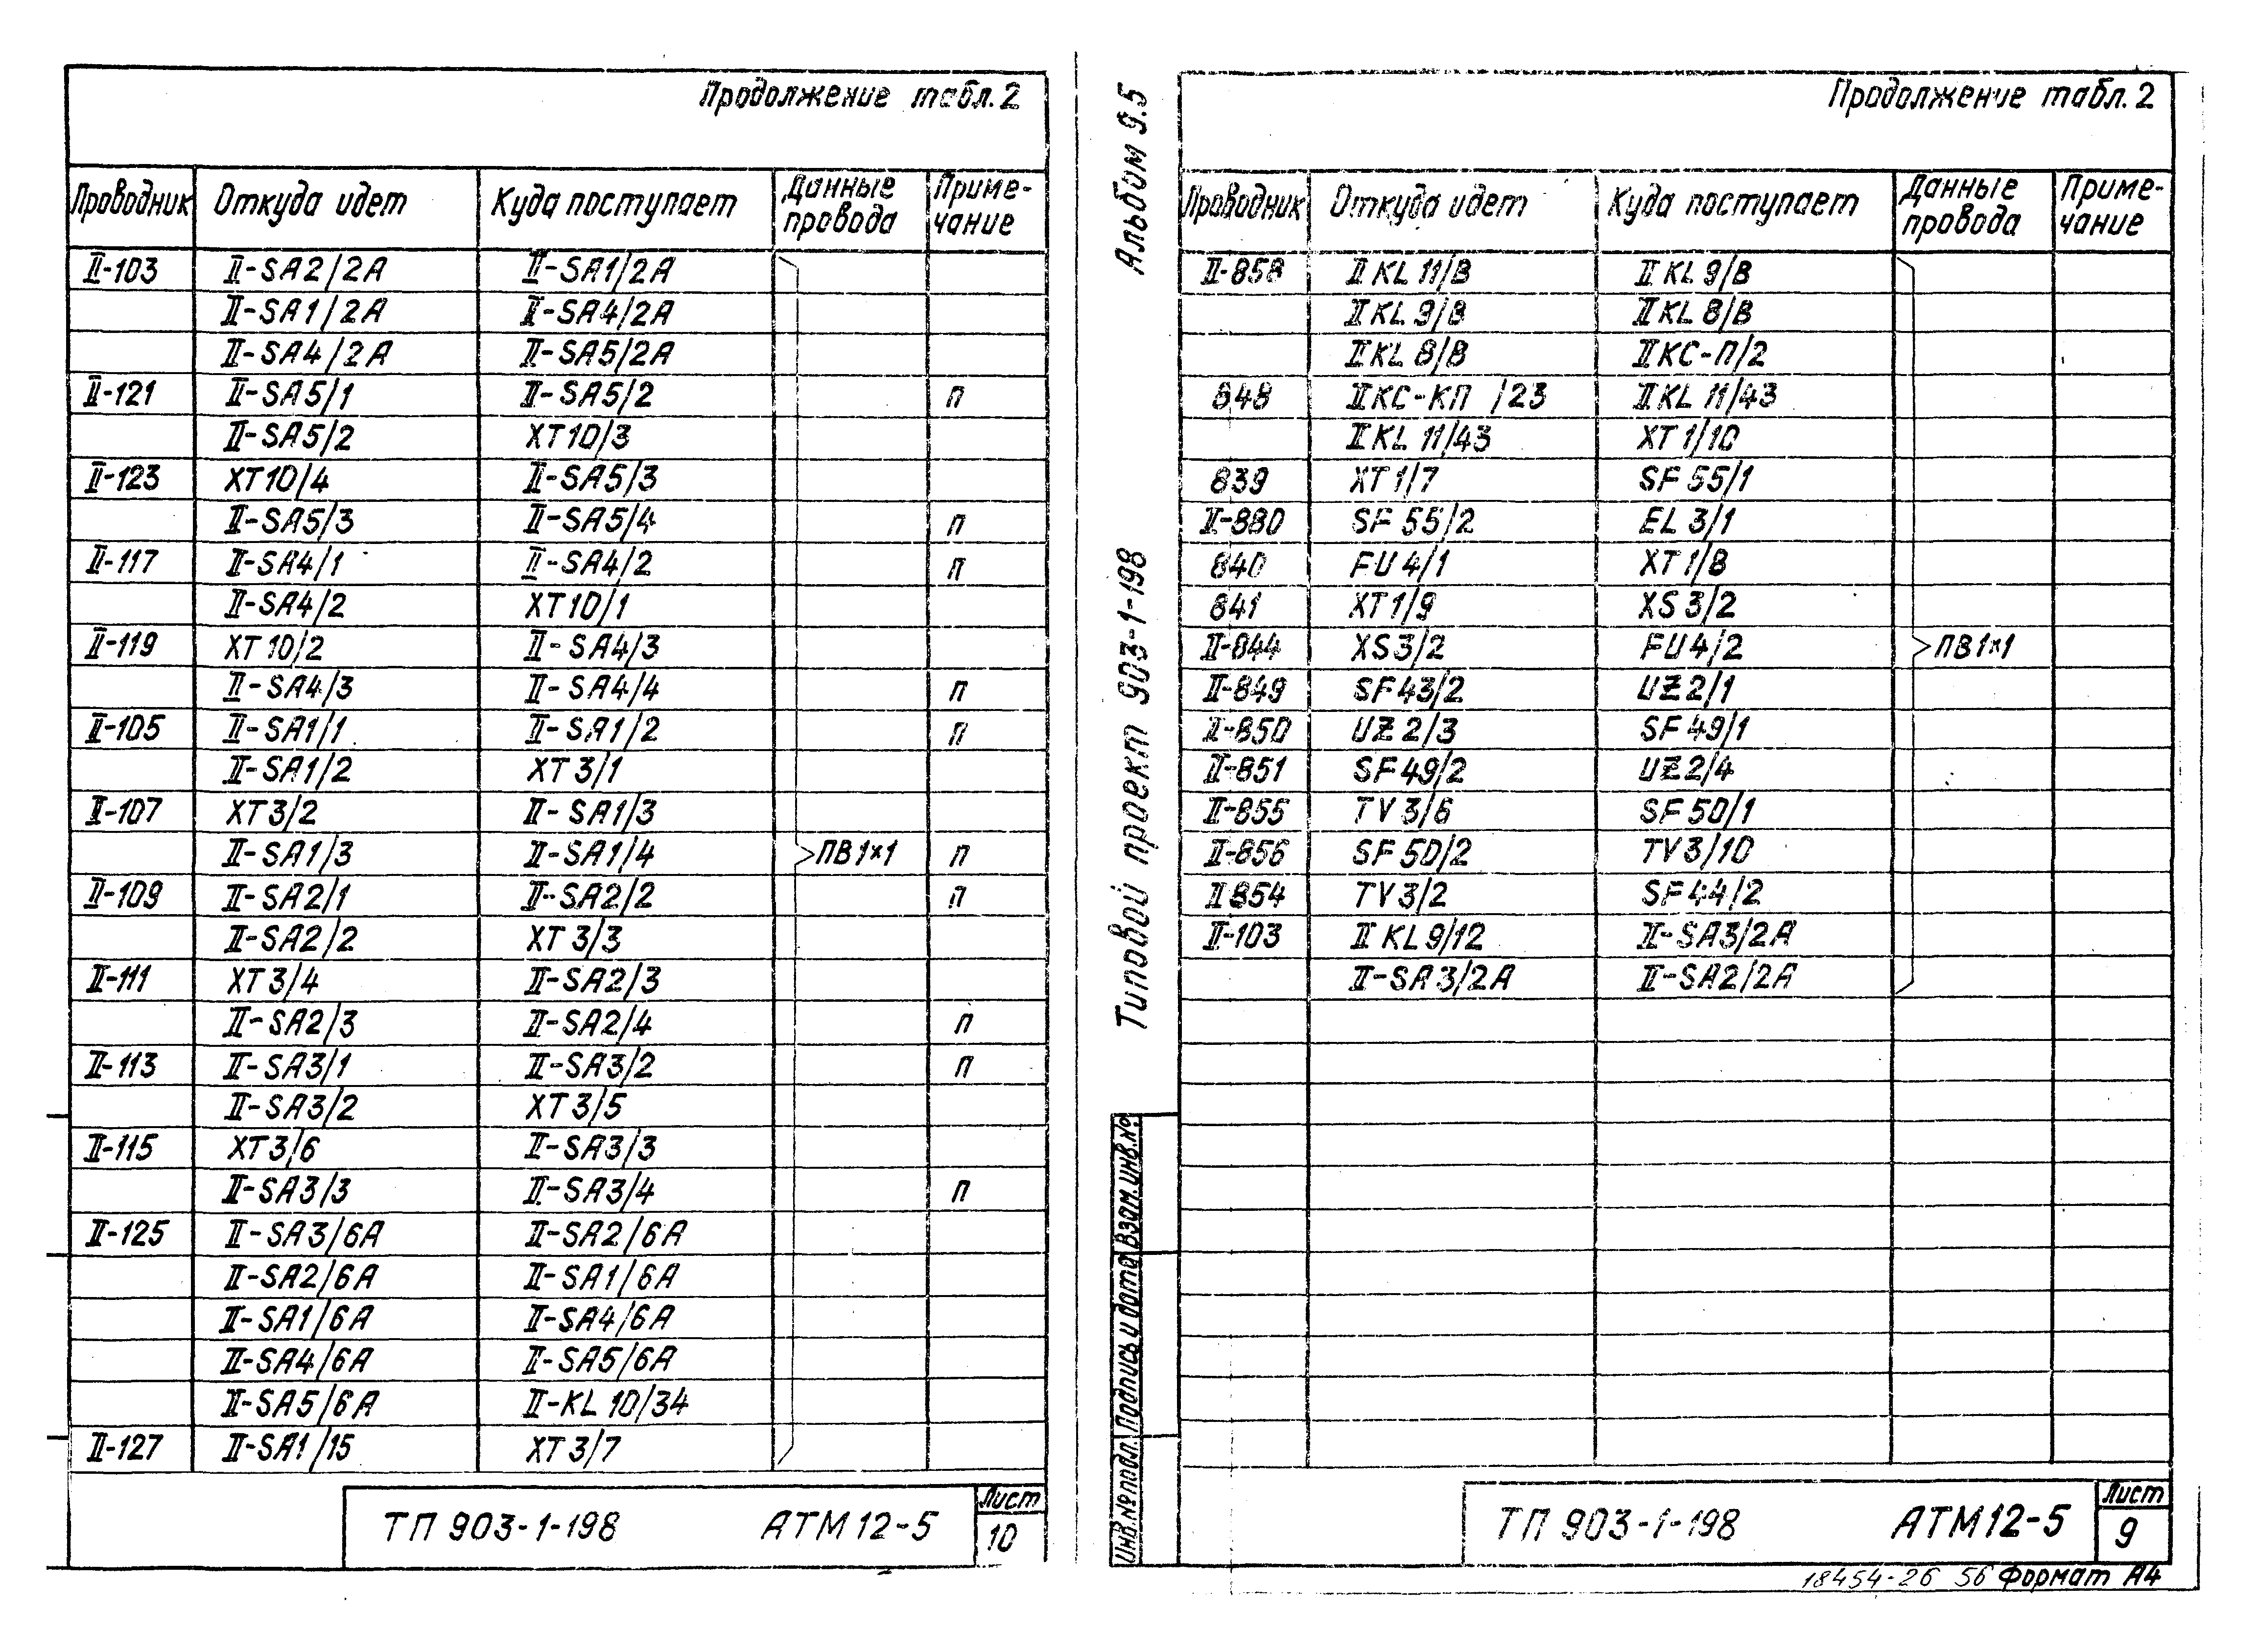 Продолжение табл. 2
Проводник Откуда идет Куда поступает Данные провода Примечание
II-103 II-SA2/2A II-SA1/2A
II-SA1/2A II-SA4/2A
II-SA4/2A II-SA5/2A
II-121 II-SA5/1 II-SA5/2 п
II-SA5/2 XT10/3
II-123 XT10/4 II-SA5/3
II-SA5/3 II-SA5/4 п
II-117 II-SA4/1 II-SA4/2 п
II-SA4/2 XT10/1
II-119 XT10/2 II-SA4/3
II-SA4/3 II-SA4/4 п
II-105 II-SA1/1 II-SA1/2 п
II-SA1/2 XT3/1
II-107 XT3/2 II-SA1/3
II-SA1/3 II-SA1/4 ПВ1×1 п
II-109 II-SA2/1 II-SA2/2 п
II-SA2/2 XT3/3
II-111 XT3/4 II-SA2/3
II-SA2/3 II-SA2/4 п
II-113 II-SA3/1 II-SA3/2 п
II-SA3/2 XT3/5
II-115 XT3/6 II-SA3/3
II-SA3/3 II-SA3/4 п
II-125 II-SA3/6A II-SA2/6A
II-SA2/6A II-SA1/6A
II-SA1/6A II-SA4/6A
II-SA4/6A II-SA5/6A
II-SA5/6A II-KL10/34
II-127 II-SA1/15 XT3/7
ТП 903-1-198 АТМ12-5 Лист 10
Альбом 9.5
Типовой проект 903-1-198
Взам.инв.№
Подпись и дата
Инв.№подл.
Продолжение табл. 2
Проводник Откуда идет Куда поступает Данные провода Примечание
II-858 II KL 11/B II KL 9/B
II KL 9/B II KL 8/B
II KL 8/B II КС-П/2
848 II КС-КП /23 II KL 11/43
II KL 11/43 XT 1/10
839 XT 1/7 SF 55/1
II-880 SF 55/2 EL 3/1
840 FU 4/1 XT 1/8
841 XT 1/9 XS 3/2
II-844 XS 3/2 FU 4/2 ПВ1×1
II-849 SF43/2 UZ2/1
II-850 UZ 2/3 SF 49/1
II-851 SF49/2 UZ2/4
II-855 TV 3/6 SF 50/1
II-856 SF 50/2 TV3/10
II 854 TV 3/2 SF 44/2
II-103 II KL 9/12 II-SA3/2A
II-SA3/2A II-SA2/2A
ТП 903-1-198 АТМ12-5 Лист 9
18454-26 56 Формат А4